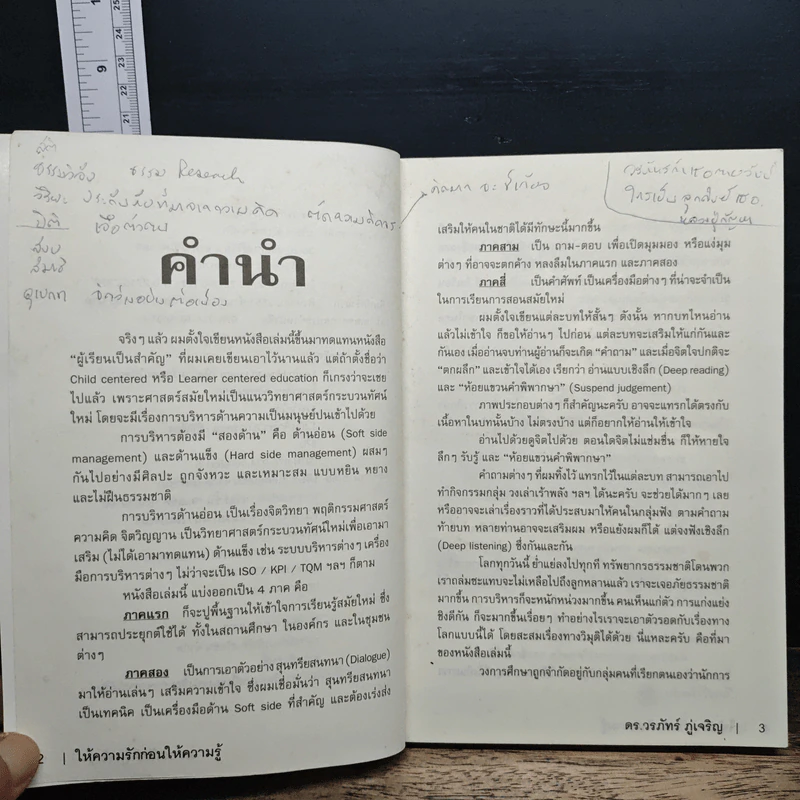 สติ
ธรรม Research
ปิติ
สงบ
สมาธิ
คำนำ
จริงๆ แล้ว ผมตั้งใจเขียนหนังสือเล่มนี้ขึ้นมาทดแทนหนังสือ
"ผู้เรียนเป็นสำคัญ" ที่ผมเคยเขียนเอาไว้นานแล้ว แต่ถ้าตั้งชื่อว่า
Child centered หรือ Learner centered education ก็เกรงว่าจะเชย
ไปแล้ว เพราะศาสตร์สมัยใหม่เป็นแนววิทยาศาสตร์กระบวนทัศน์
ใหม่ โดยจะมีเรื่องการบริหารด้านความเป็นมนุษย์ปนเข้าไปด้วย
การบริหารต้องมี "สองด้าน" คือ ด้านอ่อน (Soft side
management) และด้านแข็ง (Hard side management) ผสมๆ
กันไปอย่างมีศิลปะ ถูกจังหวะ และเหมาะสม แบบหยิน หยาง
และไม่ฝืนธรรมชาติ
การบริหารด้านอ่อน เป็นเรื่องจิตวิทยา พฤติกรรมศาสตร์
ความคิด จิตวิญญาณ เป็นวิทยาศาสตร์กระบวนทัศน์ใหม่เพื่อเอามา
เสริม (ไม่ได้เอามาทดแทน) ด้านแข็ง เช่น ระบบบริหารต่างๆ เครื่อง
มือการบริหารต่างๆ ไม่ว่าจะเป็น ISO / KPI / TQM ฯลฯ ก็ตาม
หนังสือเล่มนี้ แบ่งออกเป็น 4 ภาค คือ
ภาคแรก ก็จะปูพื้นฐานให้เข้าใจการเรียนรู้สมัยใหม่ ซึ่ง
สามารถประยุกต์ใช้ได้ ทั้งในสถานศึกษา ในองค์กร และในชุมชน
ต่างๆ
ภาคสอง เป็นการเอาตัวอย่าง สุนทรียสนทนา (Dialogue)
มาให้อ่านเล่นๆ เสริมความเข้าใจ ซึ่งผมเชื่อมั่นว่า สุนทรียสนทนา
เป็นเทคนิค เป็นเครื่องมือด้าน Soft side ที่สำคัญ และต้องเร่งส่ง
2 | ให้ความรักก่อนให้ความรู้
เสริมให้คนในชาติได้มีทักษะนี้มากขึ้น
ภาคสาม เป็น ถาม-ตอบ เพื่อเปิดมุมมอง หรือแง่มุม
ต่างๆ ที่อาจจะตกค้าง หลงลืมในภาคแรก และภาคสอง
ภาคสี่ เป็นคำศัพท์ เป็นเครื่องมือต่างๆ ที่น่าจะจำเป็น
ในการเรียนการสอนสมัยใหม่
ผมตั้งใจเขียนแต่ละบทให้สั้นๆ ดังนั้น หากบทไหนอ่าน
แล้วไม่เข้าใจ ก็ขอให้อ่านๆ ไปก่อน แต่ละบทจะเสริมให้แก่กันและ
กันเอง เมื่ออ่านจบท่านผู้อ่านก็จะเกิด "คำถาม" และเมื่อจิตใจปกติจะ
"ตกผลึก" และเข้าใจได้เอง เรียกว่า อ่านแบบเชิงลึก (Deep reading)
และ "ห้อยแขวนคำพิพากษา" (Suspend judgement)
ภาพประกอบต่างๆ ก็สำคัญนะครับ อาจจะแทรกได้ตรงกับ
เนื้อหาในบทนั้นบ้าง ไม่ตรงบ้าง แต่ก็อยากให้อ่านให้เข้าใจ
อ่านไปด้วยดูจิตไปด้วย ตอนใดจิตไม่แช่มชื่น ก็ให้หายใจ
ลึกๆ รับรู้ และ "ห้อยแขวนคำพิพากษา"
คำถามต่างๆ ที่ผมทิ้งไว้ แทรกไว้ในแต่ละบท สามารถเอาไป
ทำกิจกรรมกลุ่ม วงเล่าเร้าพลัง ฯลฯ ได้นะครับ จะช่วยได้มากๆ เลย
หรืออาจจะเล่าเรื่องราวที่ได้ประสบมาให้คนในกลุ่มฟัง ตามคำถาม
ท้ายบท หลายท่านอาจจะเสริมผม หรือแย้งผมก็ได้ แต่จงฟังเชิงลึก
(Deep listening) ซึ่งกันและกัน
โลกทุกวันนี้ ย่ำแย่ลงไปทุกที ทรัพยากรธรรมชาติโดนพวก
เราถล่มซะแทบจะไม่เหลือไปถึงลูกหลานแล้ว เราจะเจอภัยธรรมชาติ
มากขึ้น การบริหารก็จะหนักหน่วงมากขึ้น คนเห็นแก่ตัว การแก่งแย่ง
ชิงดีกัน ก็จะมากขึ้นเรื่อยๆ ทำอย่างไรเราจะเอาตัวรอดกับเรื่องทาง
โลกแบบนี้ได้ โดยสะสมเรื่องทางวิมุติได้ด้วย นี่แหละครับ คือที่มา
ของหนังสือเล่มนี้
วงการศึกษาถูกจำกัดอยู่กับกลุ่มคนที่เรียกตนเองว่านักการ
ดร.วรภัทร์ ภู่เจริญ | 3